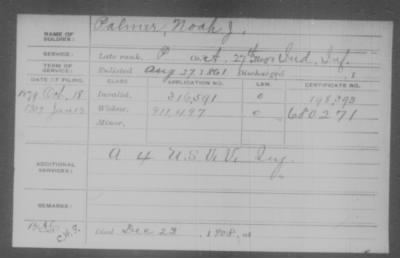 NAME OF SOLDIER: Palmer, Noah J.
SERVICE: Late rank, P Co. A, 27th Ind. Inf.
TERM OF SERVICE: Enlisted Aug 27 1861 Discharged , 1
DATE OF FILING. CLASS. APPLICATION NO. CERTIFICATE NO.
1879 Oct. 18 Invalid, 316,591 198,393
1909 Jan 13 Widow, 911,497 680271
Minor,
ADDITIONAL SERVICES: A 4 U.S.V.V. Inf.
REMARKS:
Died Dec 23, 1908, at